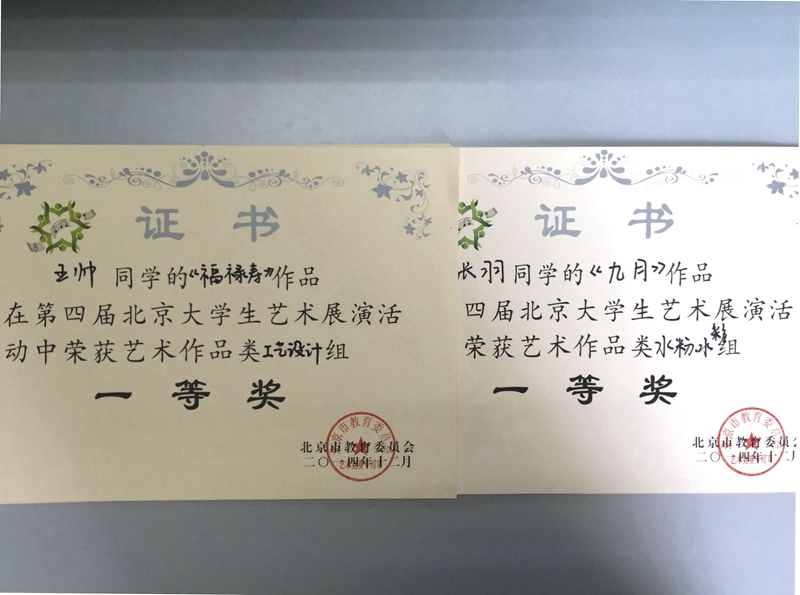 证书
王帅 同学的《福禄寿》作品
在第四届北京大学生艺术展演活
动中荣获艺术作品类工艺设计组
一等奖
北京市教育委员会
二〇一四年十二月
证书
长羽同学的《九月》作品
四届北京大学生艺术展演活
荣获艺术作品类水粉水彩组
一等奖
北京市教育委员会
二〇一四年十二月